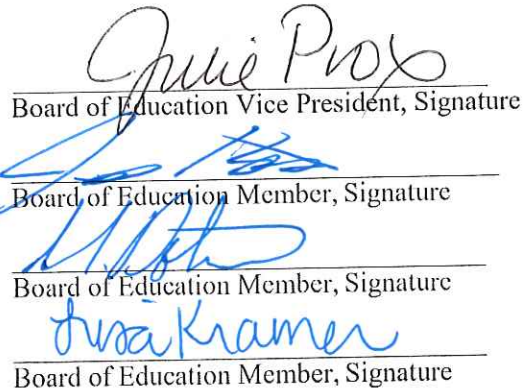 Julie Prox
Board of Education Vice President, Signature
Board of Education Member, Signature
Board of Education Member, Signature
Lisa Kramer
Board of Education Member, Signature